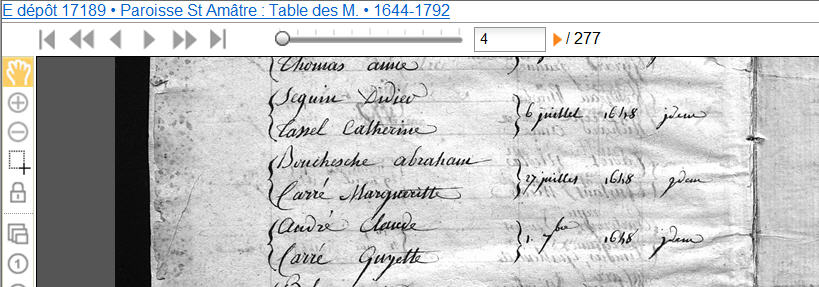 E dépôt 17189 • Paroisse St Amâtre : Table des M. • 1644-1792
4 / 277
Thomas anne
Seguin Didier
Tassel Catherine } 6 juillet 1648 jdem
Bouchesche abraham
Carré Margueritte } 27 juillet 1648 jdem
André Claude
Carré Guyette } 1. 7bre 1648 jdem
1